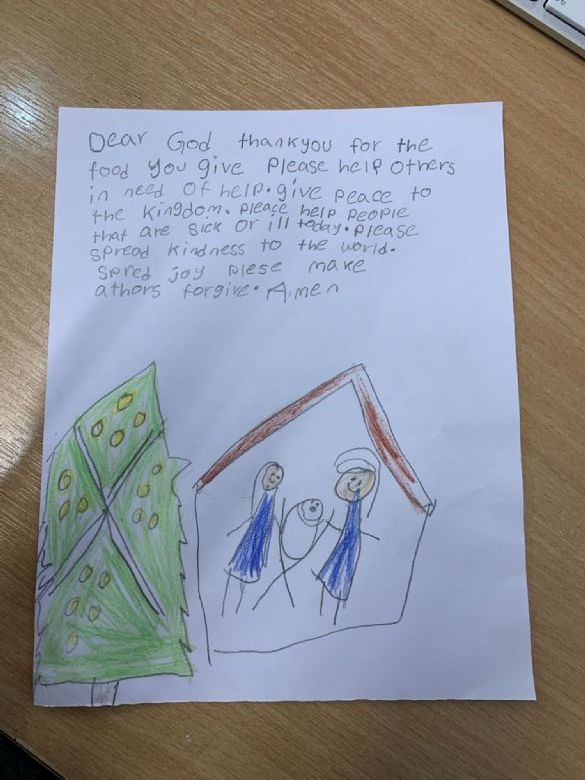 Dear God thankyou for the
food you give Please help others
in need of help. give peace to
the Kingdom. Pleace help People
that are sick or ill today. Please
spread kindness to the world.
Spred joy plese make
athors forgive. Amen